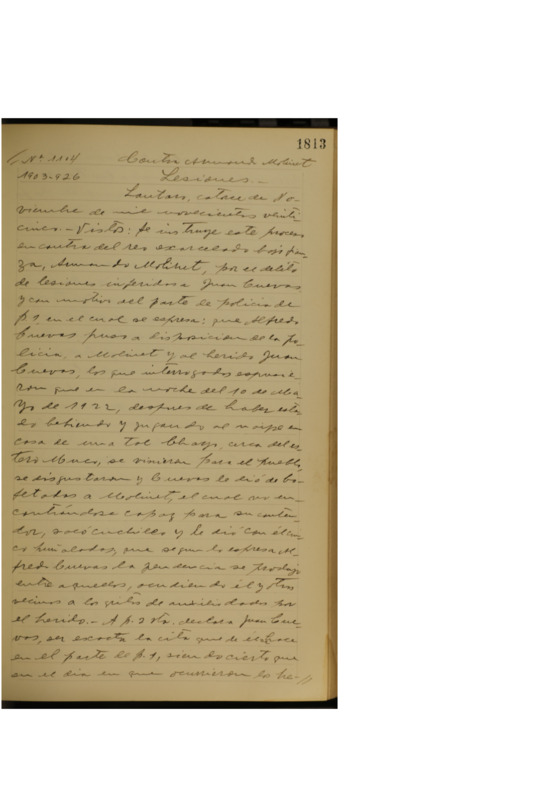 1813
Nº 1104 Contra Armando Molinet
1903-926 Lesiones.-
Lautaro, catorce de No-
viembre de mil novecientos veinti-
cinco.- Vistos: Se instruye este proceso
en contra del reo excarcelado bajo fian-
za, Armando Molinet, por el delito
de lesiones inferidas a Juan Cuevas,
y con motivo del parte de policía de
f. 1, en el cual se espresa: que Alfredo
Cuevas puso a disposicion de la po-
licía, a Molinet y al herido Juan
Cuevas, los que interrogados espusie-
ron que en la noche del 10 de Ma-
yo de 1922, despues de haber esta-
do bebiendo y jugando al naipe en
casa de una tal Charo, cerca del es-
tero Muco, se vinieron para el pueblo,
se disgustaron y Cuevas le dió de bo-
fetadas a Molinet, el cual no en-
contrándose capaz para su conten-
dor, sacó cuchillo y le dió con él cin-
co puñaladas, que segun lo espresa Al-
fredo Cuevas la pendencia se produjo
entre aquellos, acudiendo él y otros
vecinos a los gritos de auxilio dados por
el herido.- A f. 2 vta. declara Juan Cue-
vas, ser exacta la cita que de él se hace
en el parte de f. 1, siendo cierto que
en el dia en que ocurrieron los he-//